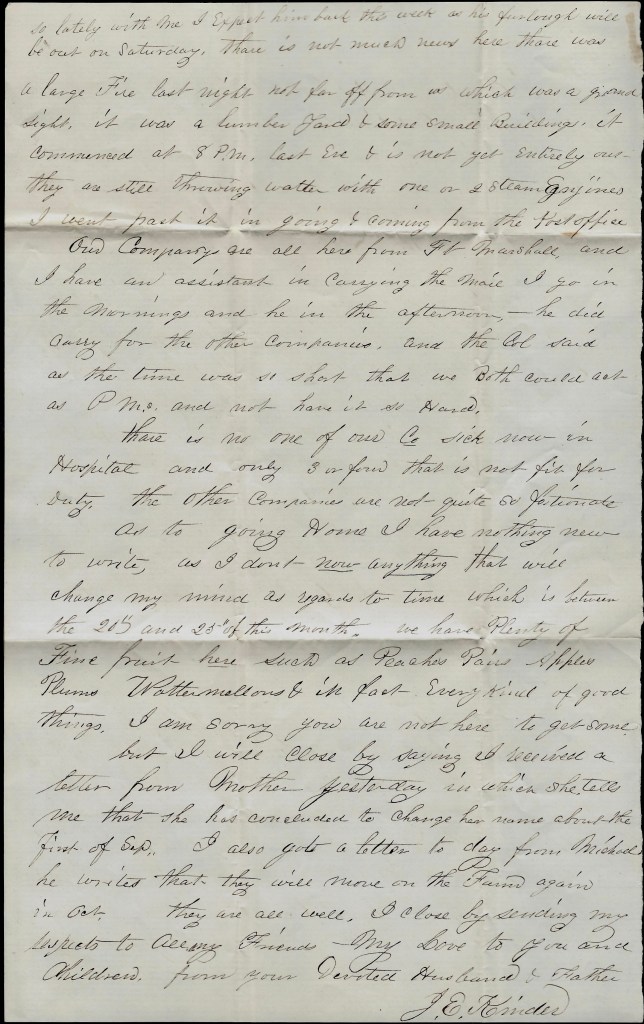 so lately with me I Expect him back this week as his furlough will
be out on Saturday, thare is not much news here thare was
a large Fire last night not far off from us which was a grand
sight. it was a lumber Yard & some Small Buildings. it
commenced at 8 P.M. last Eve & is not yet Entirely out
they are still throwing watter with one or 2 Steam Engines
I went past it in going & coming from the Post office
Our Companys are all here from Ft Marshall, and
I have an assistant in Carrying the Mail I go in
the Mornings and he in the afternoon, — he did
carry for the other Companies. and the Col said
as the time was so short that we Both could act
as P M.s. and not have it so Hard.
thare is no one of our Co sick now in
Hospital and only 3 or four that is not fit for
Duty. the other Companies are not quite so fortunate
As to going Home I have nothing new
to write, as I dont now anything that will
change my mind as regards to time which is between
the 20th and 25th of this month. we have Plenty of
Fine fruit here such as Peaches Pairs Apples
Plums Wattermellons & in fact Every kind of good
things. I am sorry you are not here to get some
but I will close by saying I received a
letter from Mother yesterday in which she tells
me that she has concluded to change her name about the
first of Sep.. I also gote a letter to day from Michael
he writes that they will move on the Farm again
in Oct. they are all well. I close by sending my
respects to all my Friends — My Love to you and
Children. from your Devoted Husband & Father
J. E. Kinder